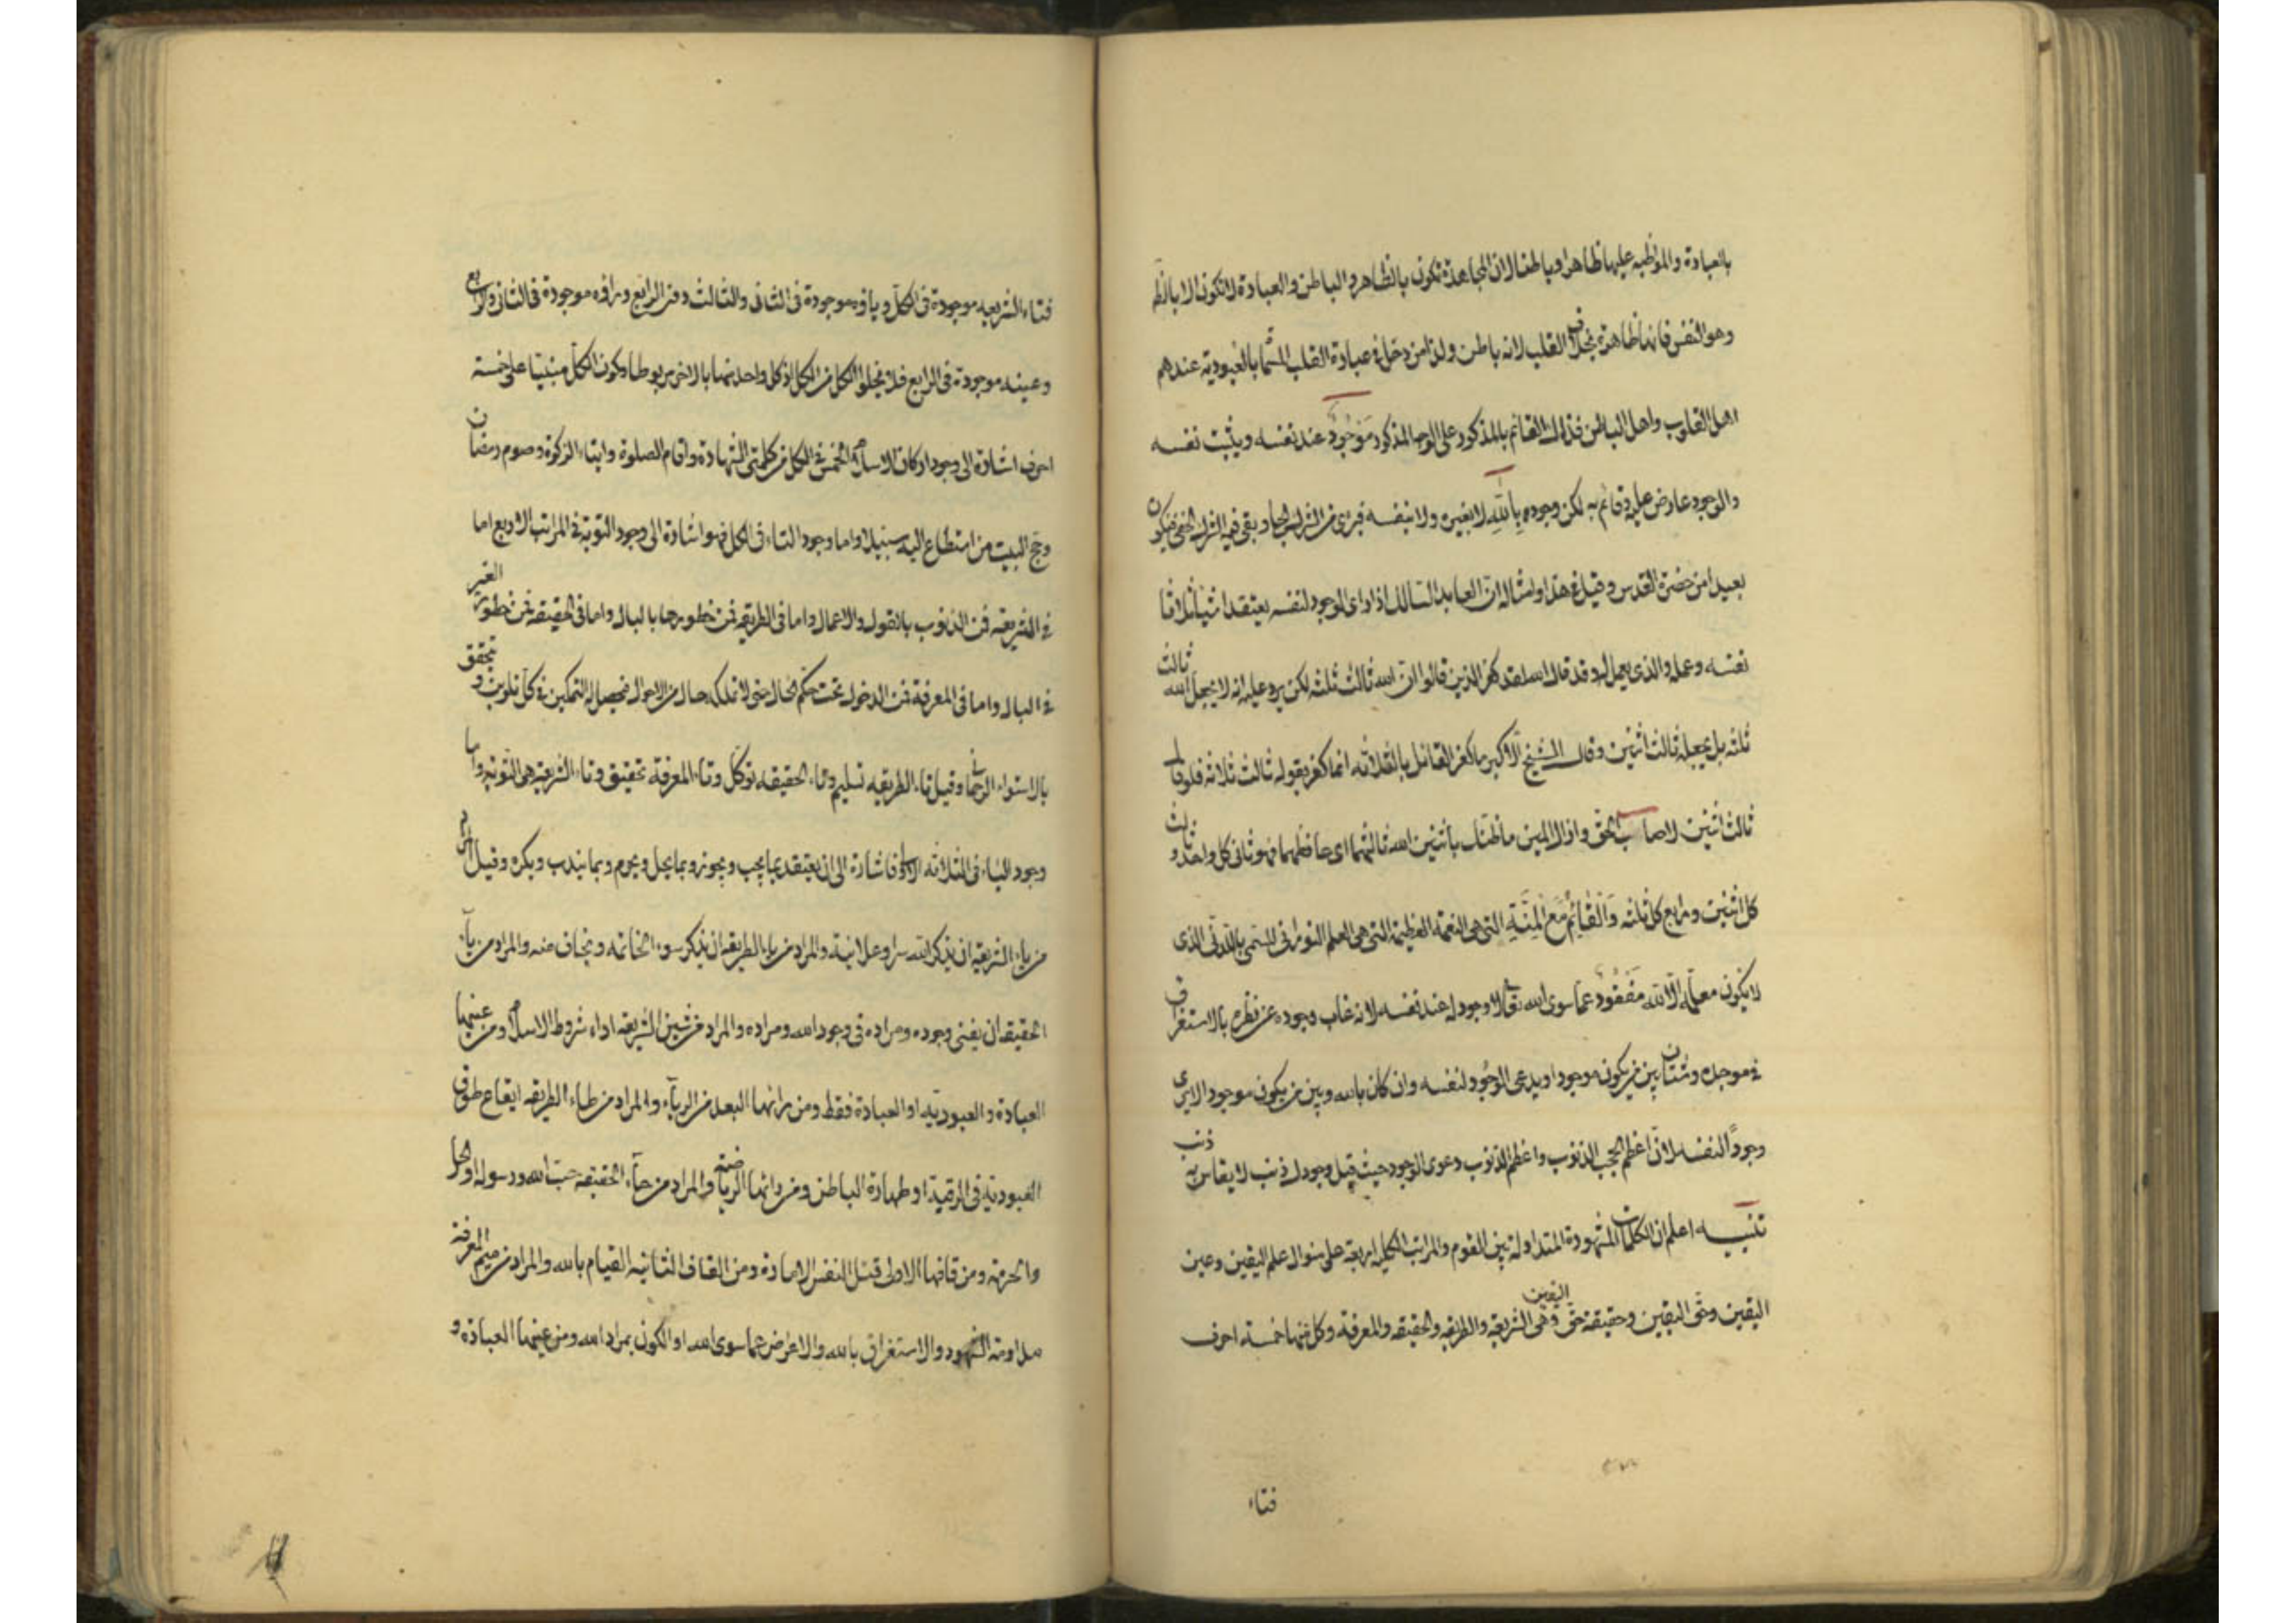 بالعبادة والمواظبه عليها ظاهرا وباطنا لان المجاهدة تكون بالظاهر والباطن والعبادة لا تكون الا بالظ
وهو النفس فانها ظاهرة بخلاف القلب لانه باطن ولذا من دخل في عبادة القلب المسما بالعبودية عندهم
اهل القلوب واهل الباطن فذلك القائم بالمذكور على الوجه المذكور مَوْجُودٌ عند نفسه ويثبت نفسه
والوجود عارض عليه وقائم به لكن وجوده بِاللّٰهِ لا بغيره ولا بنفسه فبرئ من الشرك الجلي وبقي فيه الشرك الخفي فيكون
بعيدا من حضرة القدس وقيل في هذا وامثاله ان العابد السالك اذا راى الوجود لنفسه يعتقد اشياء ثلاثا
نفسه وعمله والذي يعمل له وقد قال الله لقد كفر الذين قالوا ان الله ثالث ثلثة لكن يرد عليه انه لا يجعل الله ثالث
ثلثه بل يجعله ثالث اثنين وقال الشيخ الاكبر ما كفر القائل بالثلاثه انما كفر بقوله ثالث ثلاثه فلو قال
ثالث اثنين لاصاب الحق واذال المين ما ظنك باثنين الله ثالثهما اى حافظهما فهو ثانى كل واحد وثالث
كل اثنين ورابع كل ثلثه وَالْقَائِمُ مَعَ الْمِنَّةِ التى هى النعمة العظيمة التى هى العلم النورانى المسمى باللدنّى الذى
لا يكون معلمه الا الله مَفْقُودٌ عما سوى الله تعالى لا وجود له عند نفسه لانه غاب وجوده عن نظره بالاستغراق
في موجده وشتان بين من يكون موجودا ويدعى الوجود لنفسه وان كان بالله وبين من يكون موجود الايرى
وجودًا لنفسه لان اعظم الحجب الذنوب واعظم الذنوب دعوى الوجود حيث قيل وجودك ذنب لا يقاس به ذنب
تنبيه اعلم ان الكلمات المشهودة المتداولة بين القوم والمراتب الكلية اربعة على منوال علم اليقين وعين
اليقين وحق اليقين وحقيقة حق اليقين وهى الشريعة والطريقه والحقيقه والمعرفة وكل منها خمسة احرف
فتاء
فتاء الشريعيه موجودة فى الكل وياؤه موجودة فى الثانى والثالث وفى الرابع وراؤه موجودة فى الثانى والرابع
وعينه موجودة فى الرابع فلا يخلو الكل من الكل اذ كل واحد منها بالاخر مربوطا وكون الكل مبنيا على خمسة
احرف اشارة الى وجود اركان الاسلام الخمس في الكل من كلمتى الشهادة واقام الصلوة وايتاء الزكوة وصوم رمضان
وحج البيت من استطاع اليه سبيلا واما وجود التاء فى الكل فهو اشارة الى وجود التوبة في المراتب الاربع اما
في الشريعة فمن الذنوب بالقول والاعمال واما فى الطريقه فمن خطورها بالبال واما فى الحقيقة فمن خطور الغير
في البال واما فى المعرفة فمن الدخول تحت حكم الحال حتى لا تملكه حال من الاحوال فيحصل له التمكين في كل تلوين وتحقق
بالاستواء الرحمانى وقيل تاء الطريقيه تسليم وتاء الحقيقه توكل وتاء المعرفة تحقيق وتاء الشريعة هى التوبه واما
وجود الياء فى الثلاثه الاول فاشارة الى ان يعتقد بما يجب ويجوز وبما يحل ويحرم وبما يندب ويكره وقيل المراد
من ياء الشريعة ان يذكر الله سرا وعلانية والمراد من ياء الطريقه ان يذكر سوء الخاتمه ويخاف منه والمراد من ياء
الحقيقه ان يفنى وجوده ومراده فى وجود الله ومراده والمراد من شين الشريعه اداء شروط الاسلام ومن عينها
العبادة والعبوديه او العبادة فقط ومن رائها البعد من الرياء والمراد من طاء الطريقه ايقاع طوق
العبودية فى الرقبة او طهارة الباطن ومن رائها الرياضة والمراد من حاء الحقيقة حب الله ورسوله او الحل
والحرمة ومن قافها الاولى قتل النفس الامارة ومن القاف الثانيه القيام بالله والمراد من ميم المعرفة
مداومة الشهود والاستغراق بالله والاعراض عما سوى الله او الكون بمراد الله ومن عينها العبادة و